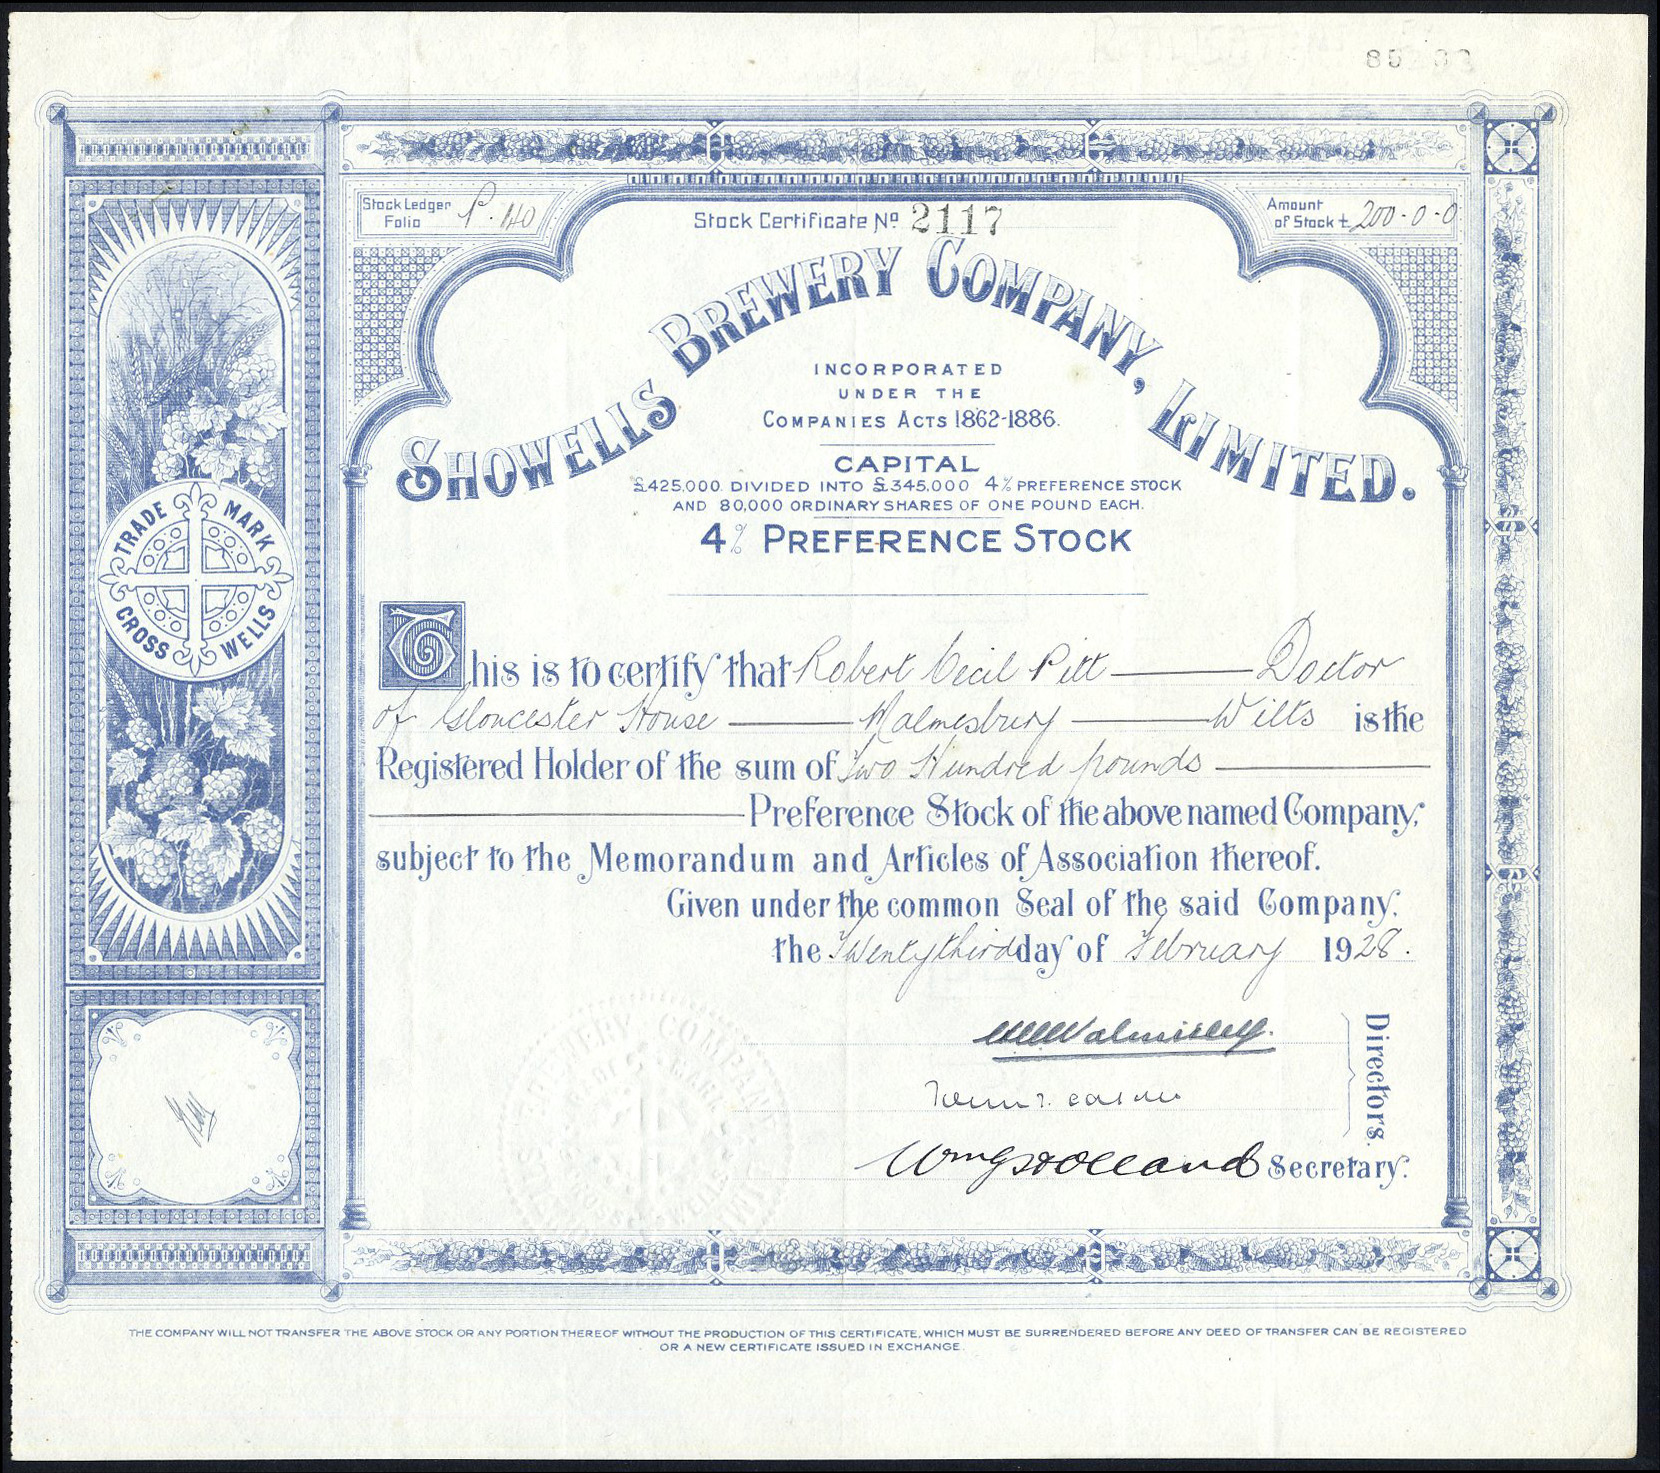 Stock Ledger
Folio P. 140
Stock Certificate No 2117
Amount
of Stock £ 200-0-0
SHOWELLS BREWERY COMPANY, LIMITED.
INCORPORATED
UNDER THE
COMPANIES ACTS 1862-1886.
CAPITAL
£425,000 DIVIDED INTO £345,000 4% PREFERENCE STOCK
AND 80,000 ORDINARY SHARES OF ONE POUND EACH.
4% PREFERENCE STOCK
TRADE MARK
CROSS WELLS
This is to certify that Robert Cecil Pitt Doctor
of Gloucester House Malmesbury Wilts is the
Registered Holder of the sum of Two Hundred pounds
Preference Stock of the above named Company,
subject to the Memorandum and Articles of Association thereof.
Given under the common Seal of the said Company,
the Twentythird day of February 1928.
Directors.
Wm G Holland Secretary.
THE COMPANY WILL NOT TRANSFER THE ABOVE STOCK OR ANY PORTION THEREOF WITHOUT THE PRODUCTION OF THIS CERTIFICATE, WHICH MUST BE SURRENDERED BEFORE ANY DEED OF TRANSFER CAN BE REGISTERED
OR A NEW CERTIFICATE ISSUED IN EXCHANGE.